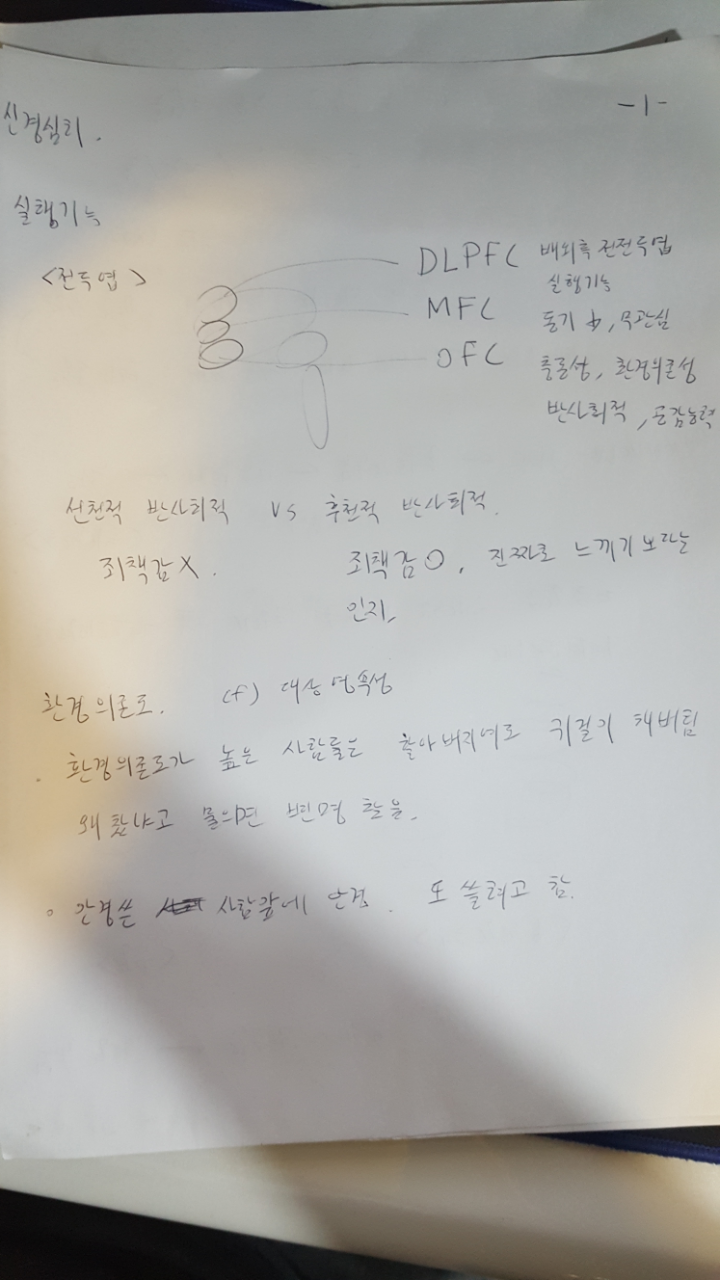 -1-
신경심리.
실행기능
<전두엽>
DLPFC 배외측 전전두엽
실행기능
MFC 동기↓, 무관심
OFC 충동성, 환경의존성
반사회적, 공감능력
선천적 반사회적 vs 후천적 반사회적.
죄책감 X. 죄책감 O, 진짜로 느끼기 보다는
인지
환경의존도. (cf) 대상영속성
. 환경의존도가 높은 사람들은 할아버지여도 귀걸이 해버림
왜 찼냐고 물으면 변명
안경쓴 사람앞에 안경. 또 쓸려고 함.